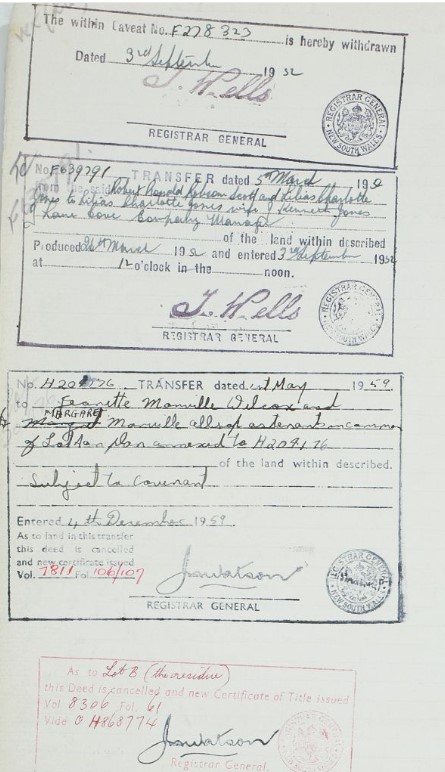 The within Caveat No. F278323 is hereby withdrawn
Dated 3rd September 1952
J. Wells
REGISTRAR GENERAL
REGISTRAR GENERAL NEW SOUTH WALES
No. F639791 TRANSFER dated 5th March 1952
from the said Robert Ronald Robson Scott and Lilias Charlotte
Jones to Lilias Charlotte Jones wife of Kenneth Jones
Lane Cove Company Manager
of the land within described
Produced March 1952 and entered 3rd September 1952
at 12 o'clock in the noon.
J. Wells
REGISTRAR GENERAL
REGISTRAR GENERAL
No. H209176 TRANSFER dated 1st May 1959
to Jeanette Manville Wilcox and
MARGARET
Manville all sqt as tenants in common
of Lot A on plan annexed to H209176
of the land within described.
Subject to Covenant
Entered 4th December 1959
As to land in this transfer
this deed is cancelled
and new certificate issued
Vol. 7811 Fol. 106/107
J. Watson
REGISTRAR GENERAL
REGISTRAR GENERAL NEW SOUTH WALES
As to Lot B (the residue)
this Deed is cancelled and new Certificate of Title issued
Vol 8306 Fol. 61
Vide O H868774
J. Watson
Registrar General.